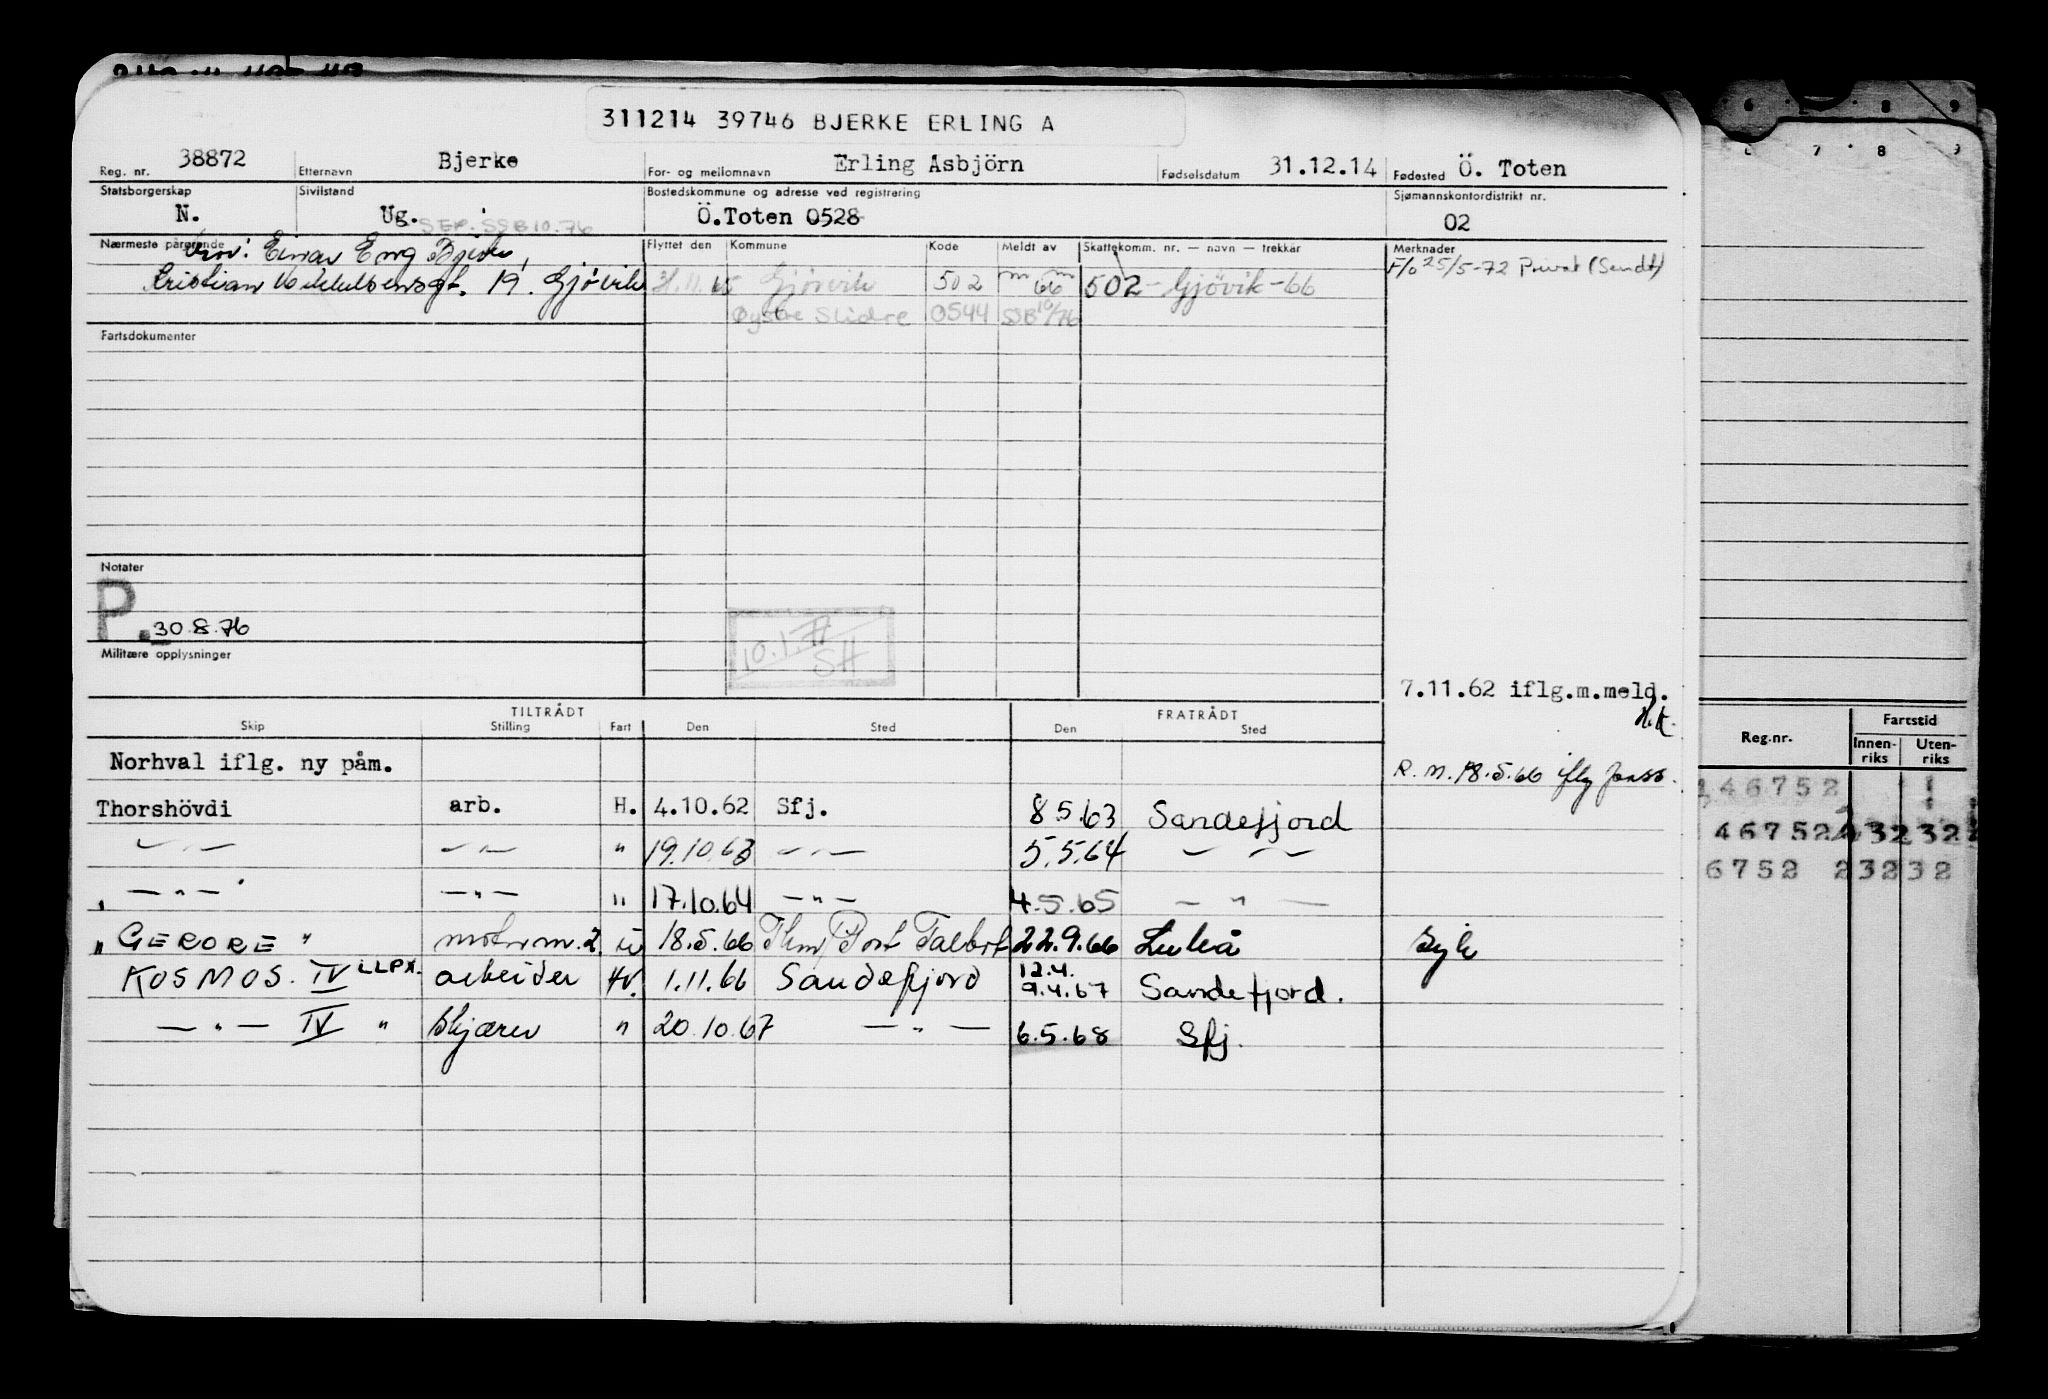 311214 39746 BJERKE ERLING A
Reg. nr. 38872 Etternavn Bjerke For- og mellomnavn Erling Asbjörn Fødselsdatum 31.12.14 Fødested Ö. Toten
Statsborgerskap Sivilstand Bostedskommune og adresse ved registrering Sjømannskontordistrikt nr.
N. Ug. SEP. SSB 10.76 Ö.Toten 0528 02
Nærmeste pårørende Flyttet den Kommune Kode Meldt av Skattekomm. nr. — navn — trekkår Merknader
Bror: Einar Eng Bjerke,
F/o 25/5-72 Privat (Sendt)
19. Gjövik Gjövik 502 66 502 - Gjövik - 66
Øystre Slidre 0544 SSB 10/76
Fartsdokumenter
Notater
P. 30.8.76
10.1.77
SH
Militære opplysninger
7.11.62 iflg.m.meld.
H.K.
TILTRÅDT FRATRÅDT
Skip Stilling Fart Den Sted Den Sted
Norhval iflg. ny påm.
R.M. 18.5.66 iflg
Thorshövdi arb. H. 4.10.62 Sfj. 8.5.63 Sandefjord
— " — — " — " 19.10.63 — " — 5.5.64 — " —
— " — — " — " 17.10.64 — " — 4.5.65 — " —
" GERORE " motorm. 2. U 18.5.66 Port Talbot 22.9.66 Luleå Syk
KOSMOS. IV LLPX. arbeider HV. 1.11.66 Sandefjord 12.4. 9.4.67 Sandefjord.
— " — IV " Skjærer " 20.10.67 — " — 6.5.68 Sfj.
6 8 9
7 8 9
Reg.nr. Fartstid
Innen-riks Uten-riks
146752
46752 232 32
6752 232 32